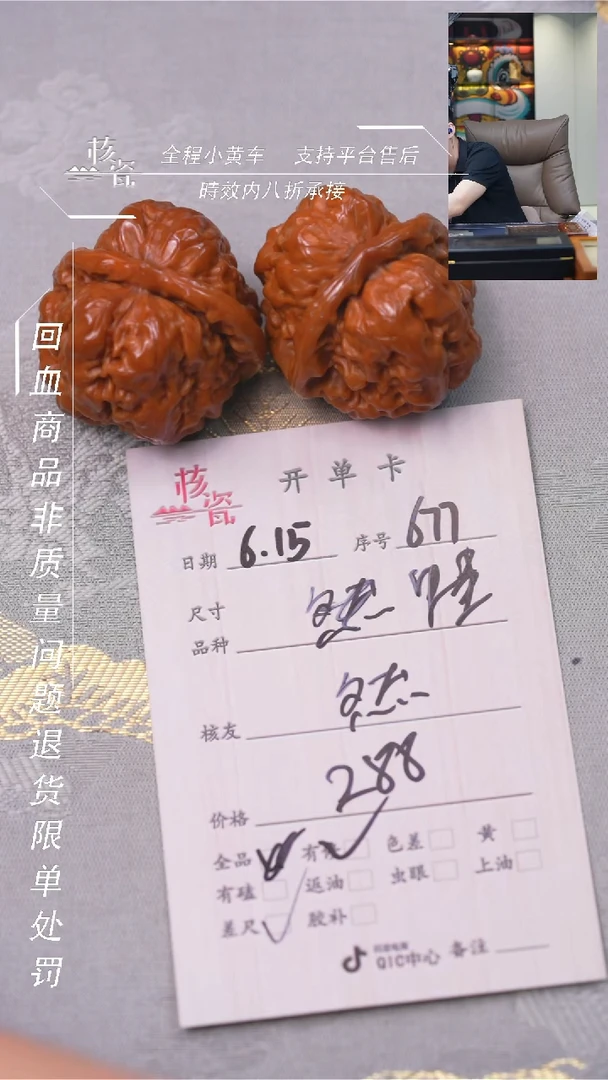 核瓷
全程小黄车 支持平台售后
時效内八折承接
回血商品非质量问题退货限单处罚
核瓷
开单卡
日期 6.15 序号 677
尺寸
品种
核友
价格 288
全品 色差 黄
有磕 返油 虫眼 上油
差尺 胶补
QIC中心 备注